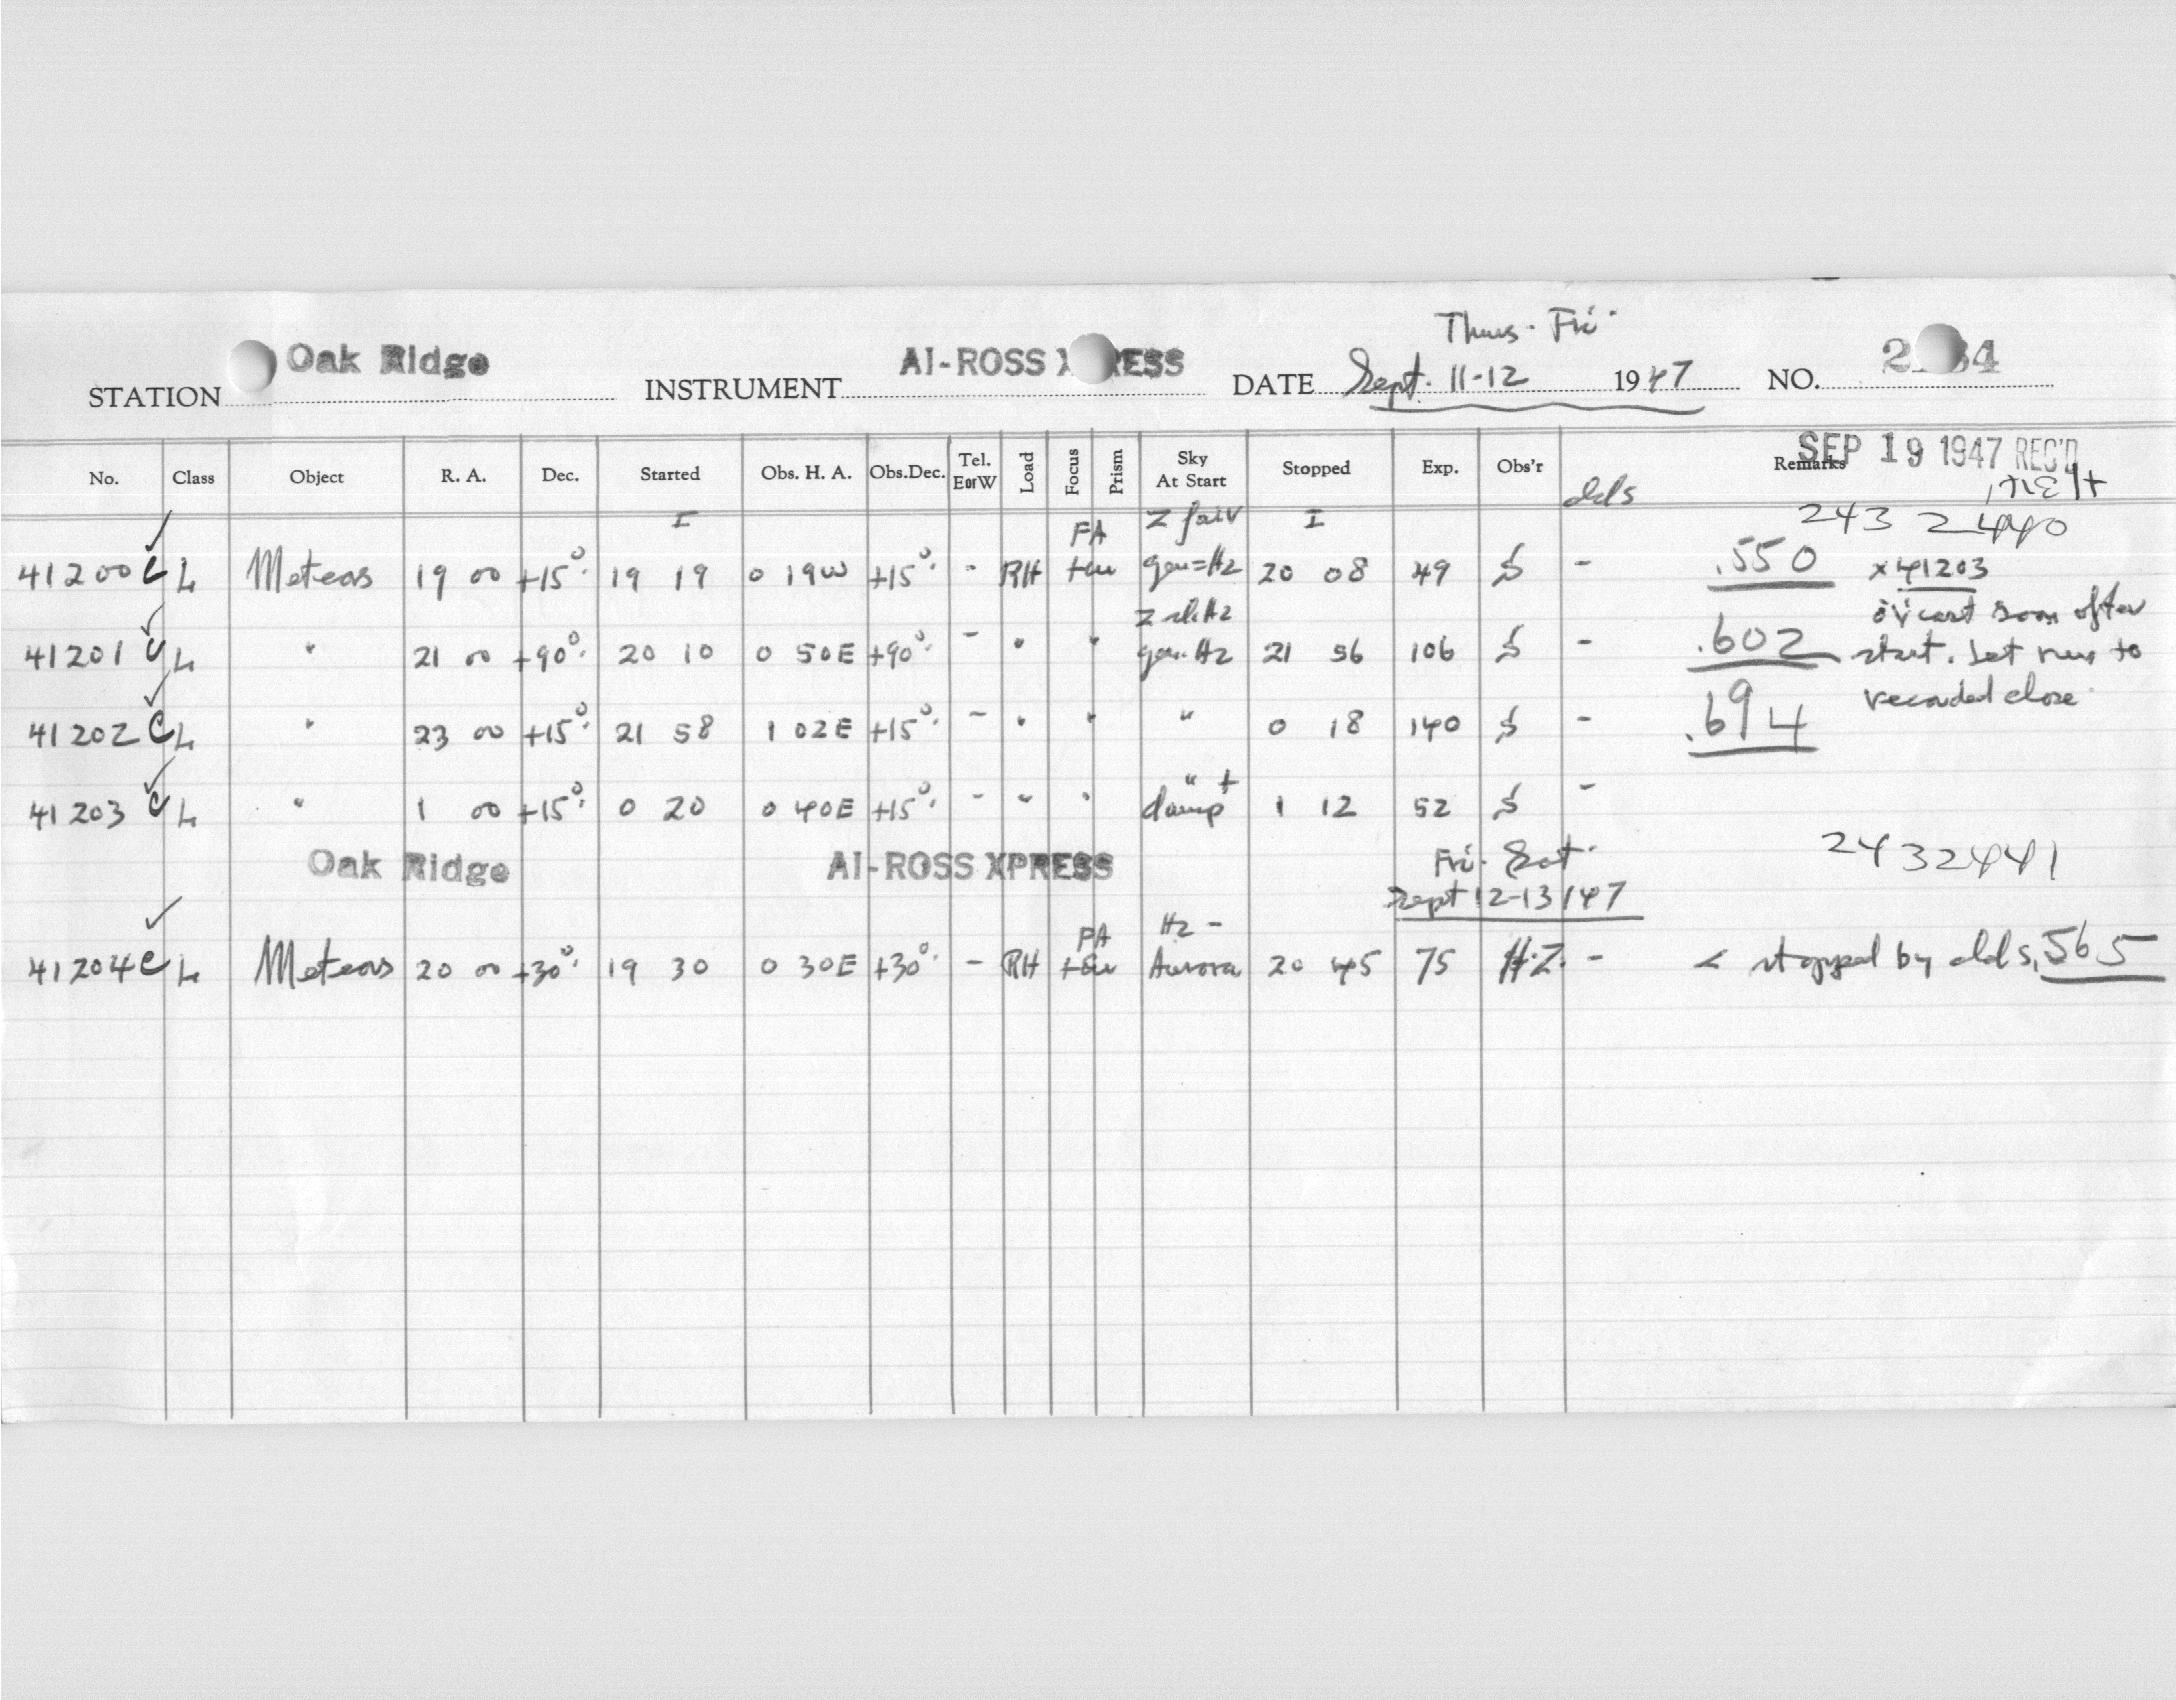 Thurs. Fri.
STATION Oak Ridge INSTRUMENT AI-ROSS XPRESS DATE Sept. 11-12 1947 NO. 2 34
SEP 19 1947 REC'D
No. Class Object R. A. Dec. Started Obs. H. A. Obs.Dec. Tel. EorW Load Focus Prism Sky At Start Stopped Exp. Obs'r clds Remarks
I FA Z fair I 243 2440
41200 C L Meteors 19 00 +15° 19 19 0 19W +15° - RH gen=Hz 20 08 49 S - .550 x 41203
Z sl.Hz ov'cast soon after
41201 C L " 21 00 +90° 20 10 0 50E +90° - " " gen Hz 21 56 106 S - .602 start. Let run to
41202 C L " 23 00 +15° 21 58 1 02E +15° - " " " 0 18 140 S - .694 recorded close
" +
41203 C L " 1 00 +15° 0 20 0 40E +15° - " " damp 1 12 52 S -
Oak Ridge AI-ROSS XPRESS Fri. Sat. 2432441
Sept 12-13/47
FA Hz -
41204 C L Meteors 20 00 +30° 19 30 0 30E +30° - RH Aurora 20 45 75 H.Z. - < stopped by clds .565